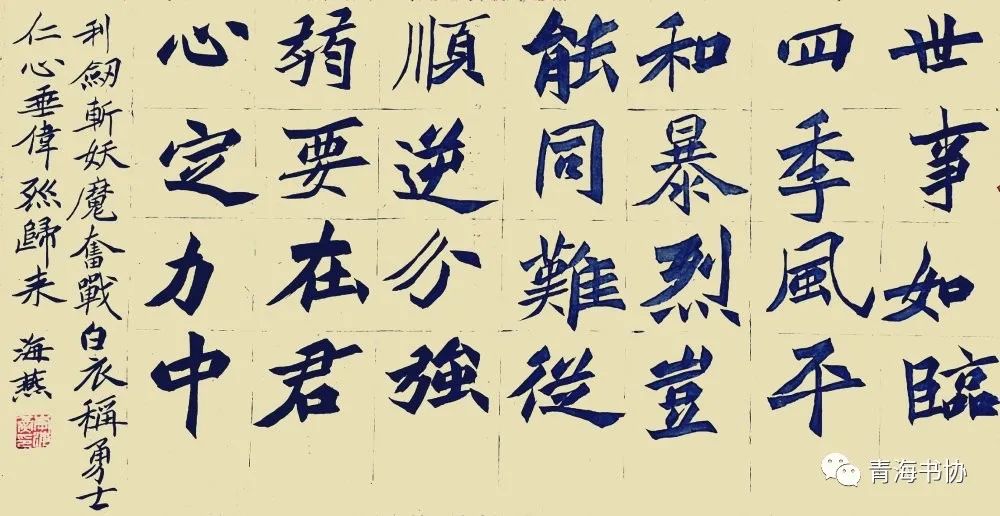 世事如臨
四季風平
和暴烈豈
能同難從
順逆分強
弱要在君
心定力中
利劒斬妖魔奮戰白衣稱勇士
仁心垂偉烝歸来 海燕
青海书协